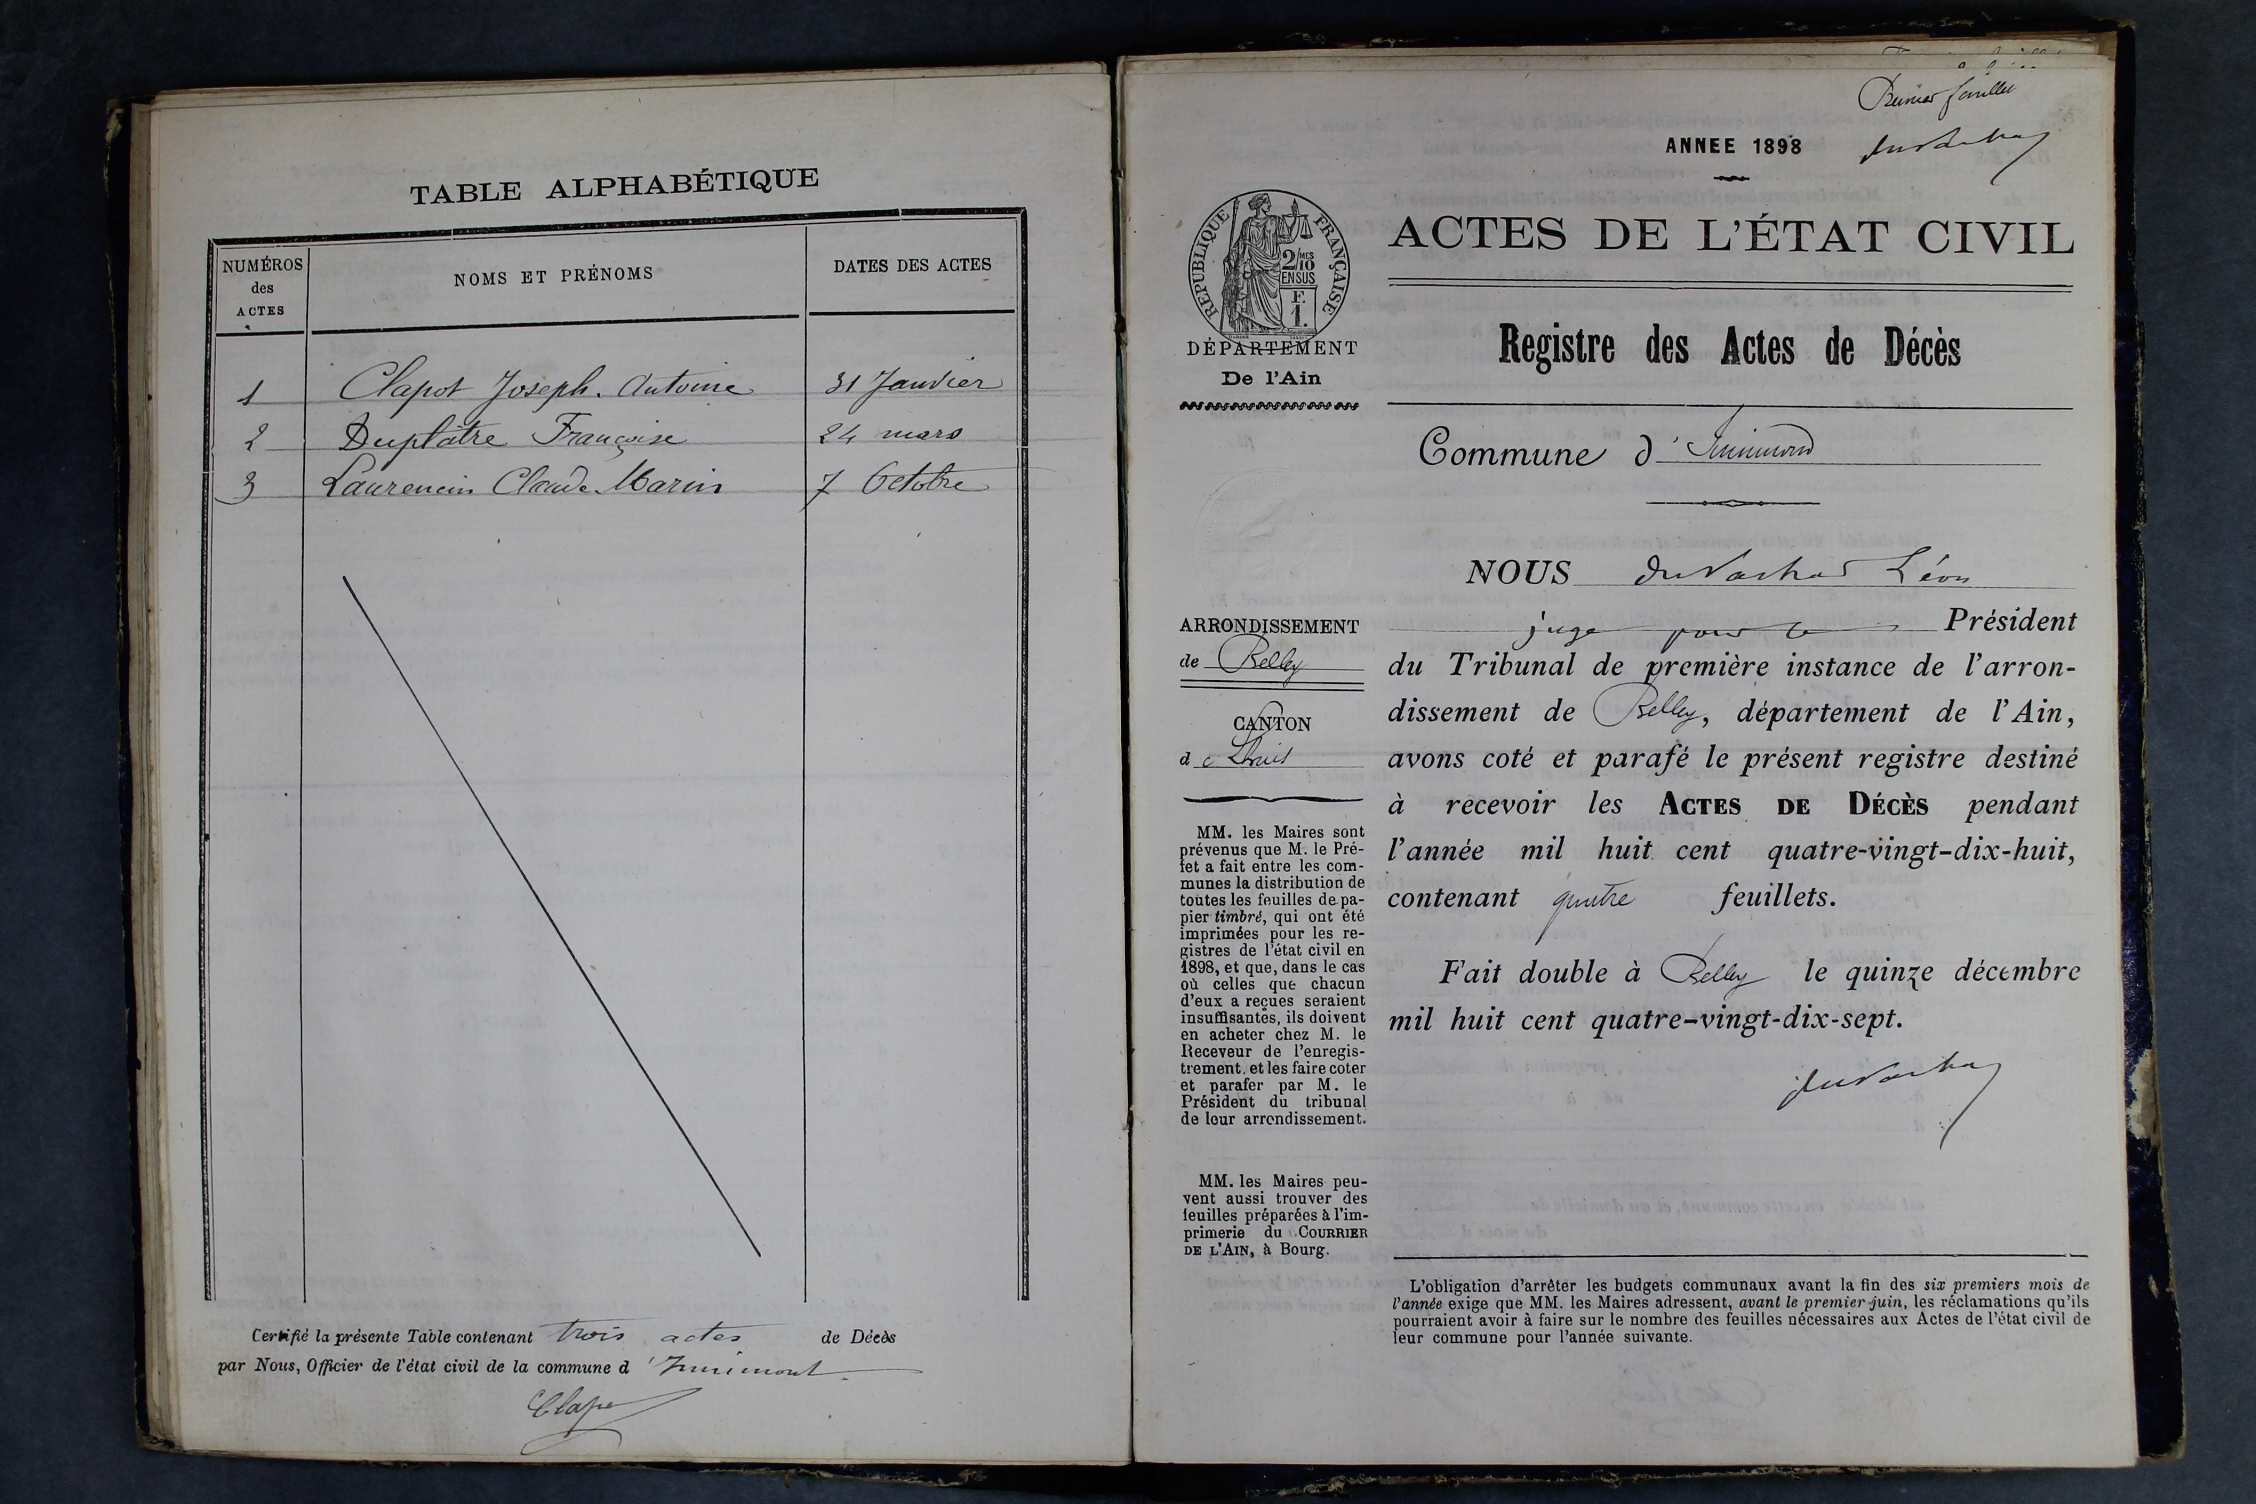 TABLE ALPHABÉTIQUE
NUMÉROS des ACTES
NOMS ET PRÉNOMS
DATES DES ACTES
1 Clapot Joseph-Antoine 31 Janvier
2 Duplâtre Françoise 24 mars
3 Laurencin Claude Marin 7 Octobre
Certifié la présente Table contenant trois actes de Décès
par Nous, Officier de l'état civil de la commune d'Innimont
Premier feuillet
ANNEE 1898
RÉPUBLIQUE FRANÇAISE
2/10 MES
EN SUS
F.
1.
ACTES DE L'ÉTAT CIVIL
DÉPARTEMENT
De l'Ain
Registre des Actes de Décès
Commune d'Innimond
ARRONDISSEMENT
de Belley
CANTON
de Lhuis
MM. les Maires sont
prévenus que M. le Pré-
fet a fait entre les com-
munes la distribution de
toutes les feuilles de pa-
pier timbré, qui ont été
imprimées pour les re-
gistres de l'état civil en
1898, et que, dans le cas
où celles que chacun
d'eux a reçues seraient
insuffisantes, ils doivent
en acheter chez M. le
Receveur de l'enregis-
trement. et les faire coter
et parafer par M. le
Président du tribunal
de leur arrondissement.
MM. les Maires peu-
vent aussi trouver des
feuilles préparées à l'im-
primerie du COURRIER
DE L'AIN, à Bourg.
NOUS Léon
juge pour le Président
du Tribunal de première instance de l'arron-
dissement de Belley, département de l'Ain,
avons coté et parafé le présent registre destiné
à recevoir les ACTES DE DÉCÈS pendant
l'année mil huit cent quatre-vingt-dix-huit,
contenant quatre feuillets.
Fait double à Belley le quinze décembre
mil huit cent quatre-vingt-dix-sept.
L'obligation d'arrêter les budgets communaux avant la fin des six premiers mois de
l'année exige que MM. les Maires adressent, avant le premier juin, les réclamations qu'ils
pourraient avoir à faire sur le nombre des feuilles nécessaires aux Actes de l'état civil de
leur commune pour l'année suivante.